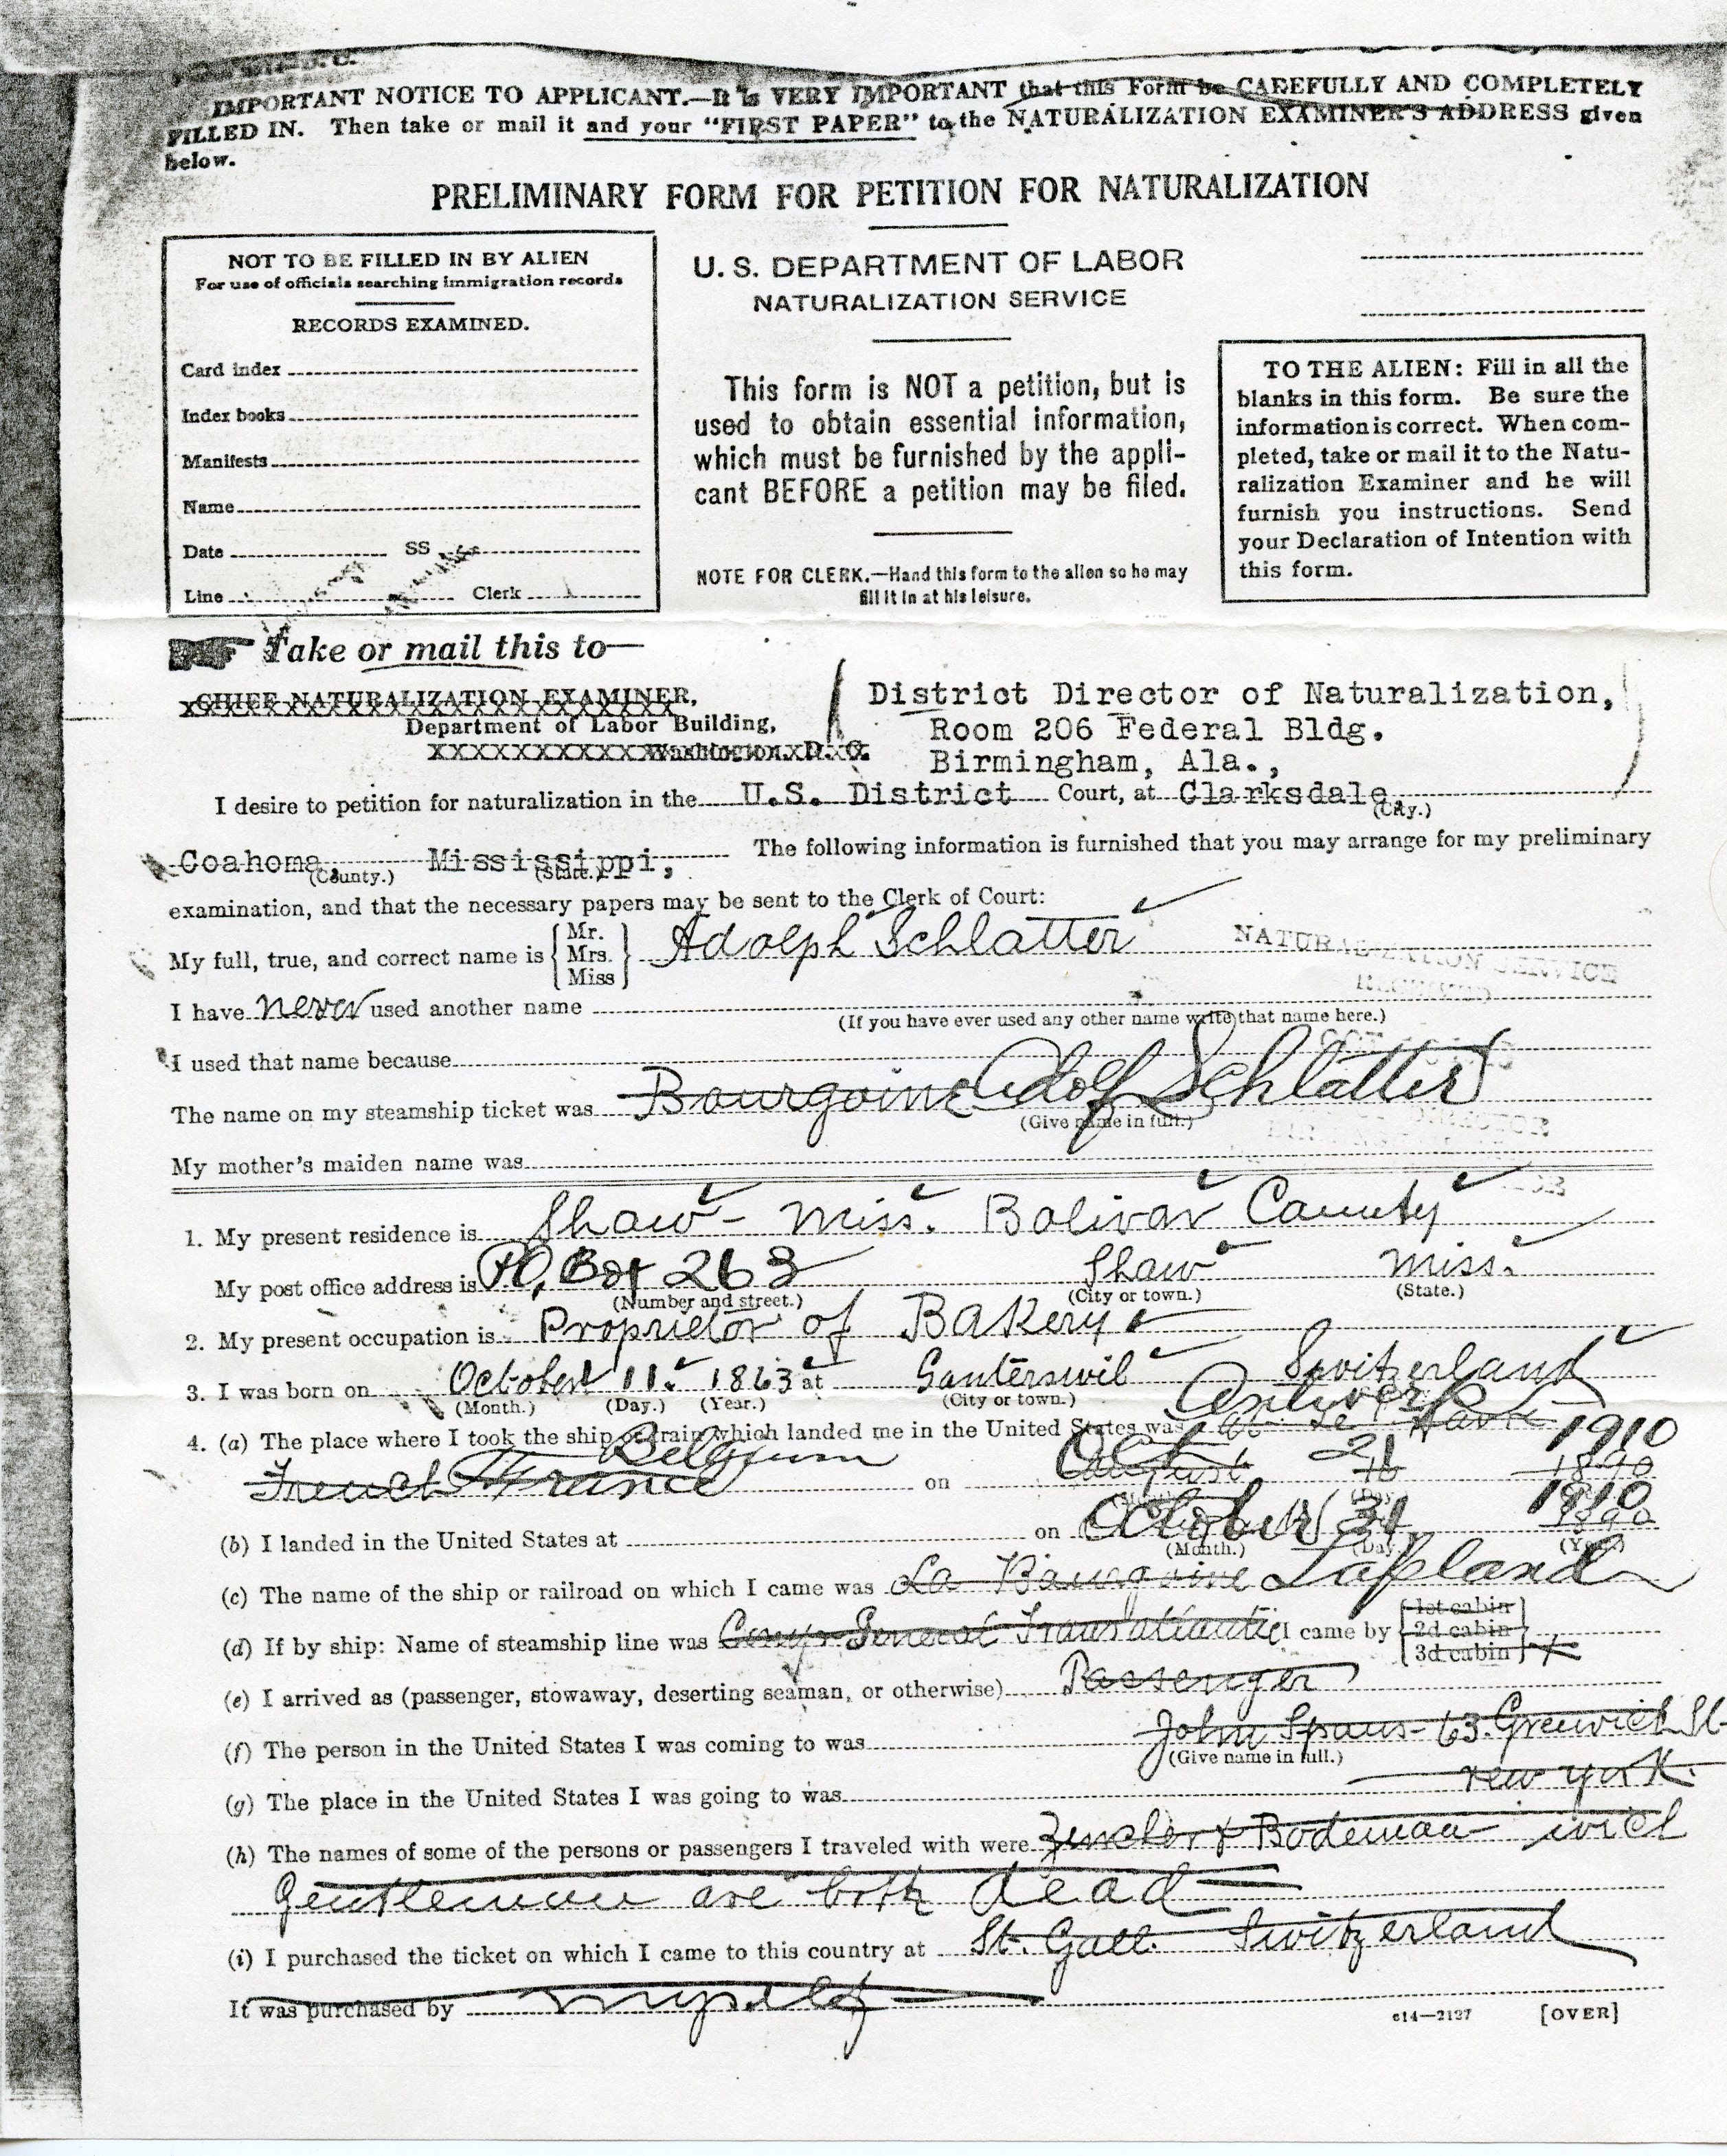 IMPORTANT NOTICE TO APPLICANT.—It is VERY IMPORTANT that this Form be CAREFULLY AND COMPLETELY
FILLED IN. Then take or mail it and your "FIRST PAPER" to the NATURALIZATION EXAMINER'S ADDRESS given
below.
PRELIMINARY FORM FOR PETITION FOR NATURALIZATION
NOT TO BE FILLED IN BY ALIEN
For use of officials searching immigration records
RECORDS EXAMINED.
Card index
Index books
Manifests
Name
Date SS
Line Clerk
U. S. DEPARTMENT OF LABOR
NATURALIZATION SERVICE
This form is NOT a petition, but is
used to obtain essential information,
which must be furnished by the appli-
cant BEFORE a petition may be filed.
NOTE FOR CLERK.—Hand this form to the alien so he may
fill it in at his leisure.
TO THE ALIEN: Fill in all the
blanks in this form. Be sure the
information is correct. When com-
pleted, take or mail it to the Natu-
ralization Examiner and he will
furnish you instructions. Send
your Declaration of Intention with
this form.
Take or mail this to—
CHIEF NATURALIZATION EXAMINER,
Department of Labor Building,
Washington, D. C.
District Director of Naturalization,
Room 206 Federal Bldg.
Birmingham, Ala.,
I desire to petition for naturalization in the U.S. District Court, at Clarksdale,
(City.)
Coahoma, Mississippi, The following information is furnished that you may arrange for my preliminary
(County.) (State.)
examination, and that the necessary papers may be sent to the Clerk of Court:
My full, true, and correct name is Mr. Mrs. Miss Adolph Schlatter
NATURALIZATION SERVICE
RECEIVED
I have never used another name
(If you have ever used any other name write that name here.)
I used that name because
The name on my steamship ticket was Bourgoine Adolf Schlatter
(Give name in full.)
My mother's maiden name was
1. My present residence is Shaw - Miss. Bolivar County
My post office address is P.O. Box 263 Shaw Miss.
(Number and street.) (City or town.) (State.)
2. My present occupation is Proprietor of Bakery
3. I was born on October 11. 1863 at Ganterswil Switzerland
(Month.) (Day.) (Year.) (City or town.)
4. (a) The place where I took the ship or train which landed me in the United States was Le Havre Antwerp
French France Belgium on August 16 1890 Oct 21 1910
(b) I landed in the United States at on October 31 1910 1890
(Month.) (Day.) (Year.)
(c) The name of the ship or railroad on which I came was La Bourgoine Lapland
(d) If by ship: Name of steamship line was Comp General Transatlantic I came by 1st cabin 2d cabin 3d cabin
(e) I arrived as (passenger, stowaway, deserting seaman, or otherwise) Passenger
(f) The person in the United States I was coming to was John 63 Greenwich St
(Give name in full.)
New York.
(g) The place in the United States I was going to was
(h) The names of some of the persons or passengers I traveled with were & Bodeman wich
Gentleman are both dead
(i) I purchased the ticket on which I came to this country at St. Gall. Switzerland
It was purchased by myself
c14—2127 [OVER]